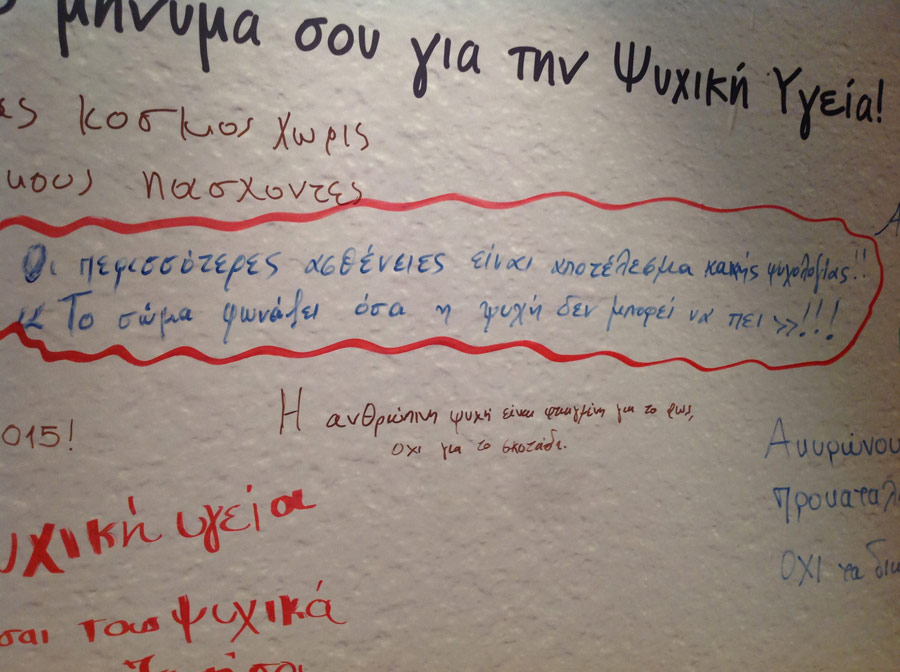 μήνυμα σου για την Ψυχική Υγεία!
κοσμος χωρις
πασχοντες
Οι περισσότερες ασθένειες είναι αποτέλεσμα κακής ψυχολογίας!!
<< Το σώμα φωνάζει όσα η ψυχή δεν μπορεί να πει >>!!!
Η ανθρώπινη ψυχή είναι φτιαγμένη για το φως,
οχι για το σκοτάδι.
015!
Ακυρώνου
προκαταλ
ΟΧΙ τα δικ
υχική υγεία
σαι τους ψυχικά